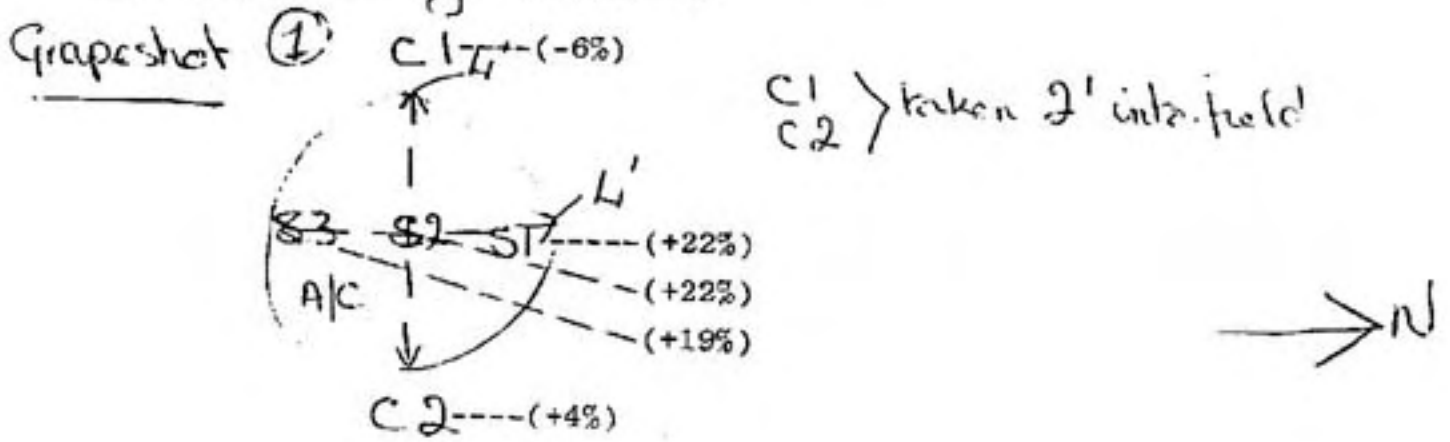 Grapeshot ① C1 (-6%)
C1
C2 } taken 2' into field
4'
S3 S2 S1 (+22%)
(+22%)
A/C
(+19%)
N
C2 (+4%)